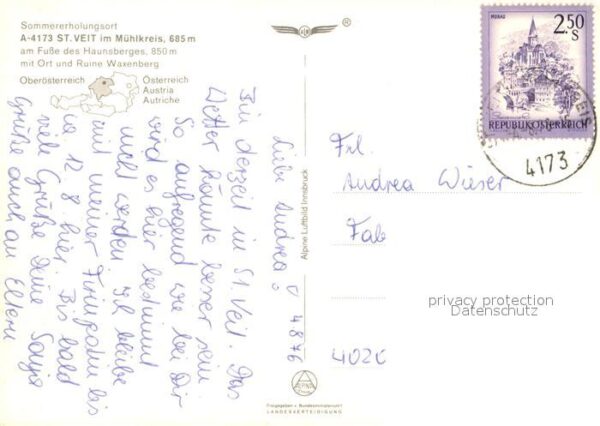 Sommererholungsort
A-4173 ST. VEIT im Mühlkreis, 685 m
am Fuße des Haunsberges, 850 m
mit Ort und Ruine Waxenberg
Oberösterreich
Österreich
Austria
Autriche
Liebe Andrea!
Bin derzeit in St. Veit. Das
Wetter könnte besser sein
So aufregend wie bei Dir
wird es hier bestimmt
nicht werden. Ich bleibe
mit meiner
bis
12. 8. hier. Bis bald
viele Grüße Deine Sonja
Grüße auch an Eltern
Alpine Luftbild Innsbruck
4876
ALPINE
Freigegeben v. Bundesministerium f.
LANDESVERTEIDIGUNG
®
MURAU
2.50
S
REPUBLIK ÖSTERREICH
4173
Frl.
Andrea Wieser
4020
privacy protection
Datenschutz